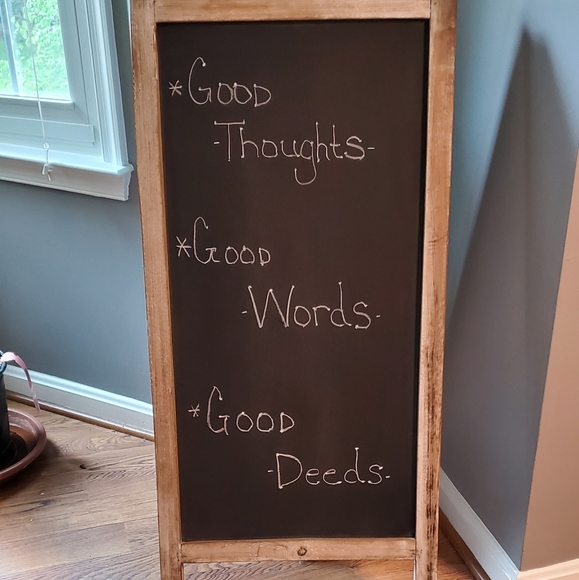 *GOOD
-Thoughts-
*GOOD
-Words-
*GOOD
-Deeds-